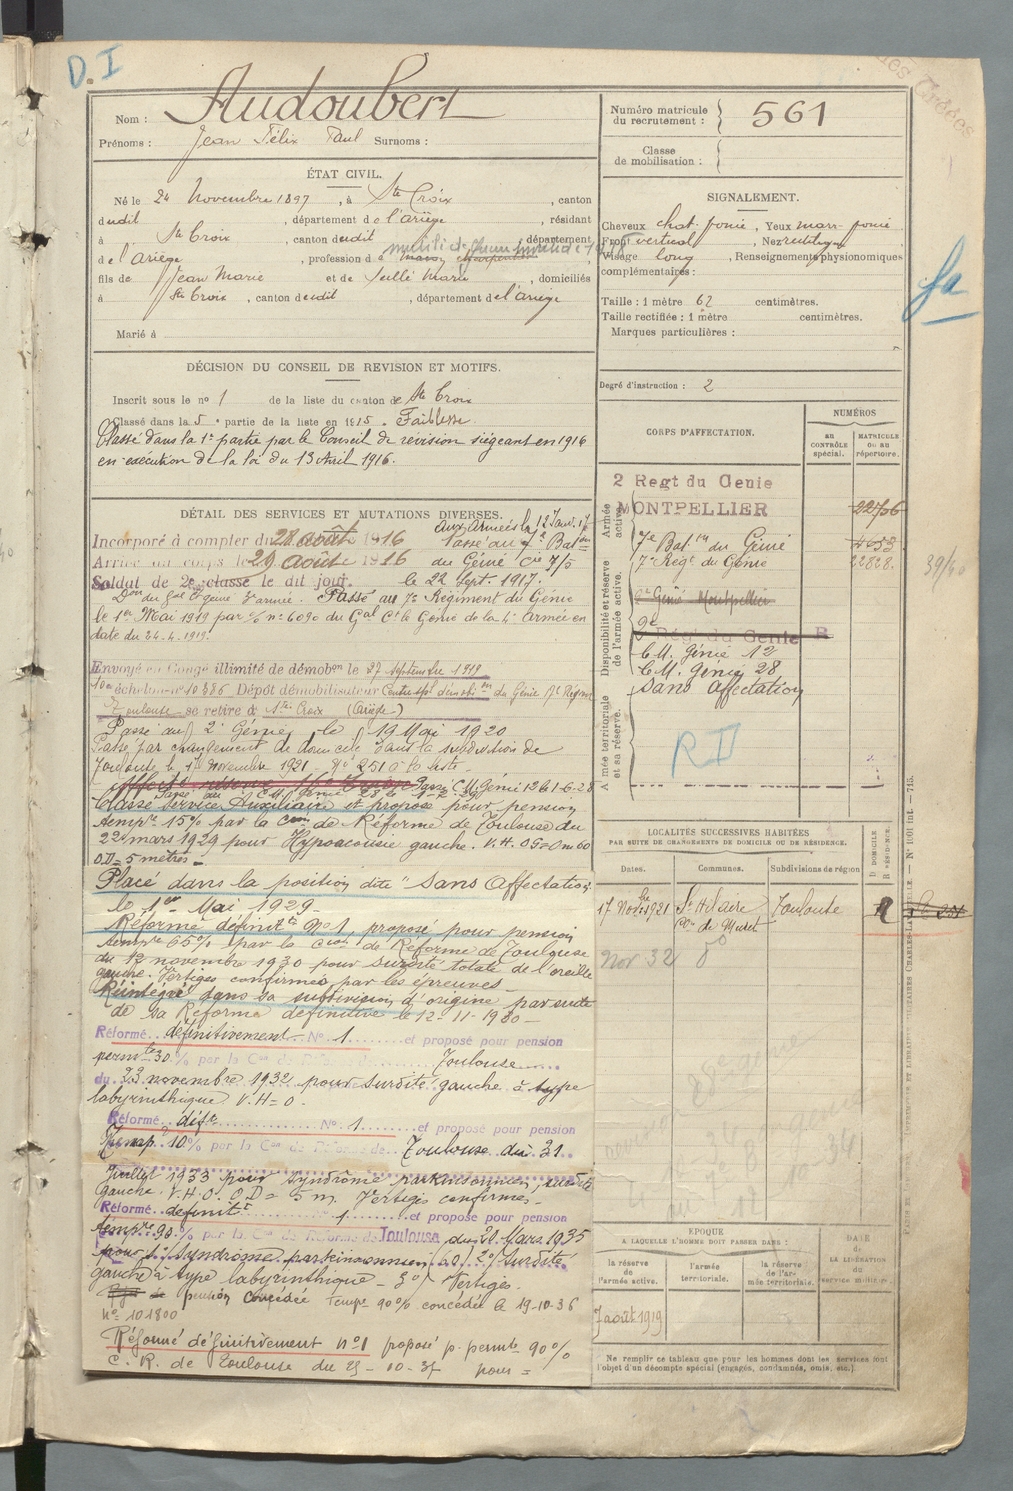 D. I
Nom : Audoubert
Prénoms : Jean Félix Paul Surnoms :
Numéro matricule du recrutement : 561
Classe de mobilisation :
ÉTAT CIVIL.
Né le 24 Novembre 1897, à Ste Croix, canton
dudit, département de l'ariège, résidant
à Ste Croix, canton dudit, département
de l'ariège, profession de
fils de Jean Marie et de Marie, domiciliés
à Ste Croix, canton dudit, département de l'ariège
Marié à
SIGNALEMENT.
Cheveux chat. foncé, Yeux marr. foncé
Front vertical, Nez rectiligne
Visage long, Renseignements physionomiques
complémentaires :
Taille : 1 mètre 62 centimètres.
Taille rectifiée : 1 mètre centimètres.
Marques particulières :
Degré d'instruction : 2
DÉCISION DU CONSEIL DE REVISION ET MOTIFS.
Inscrit sous le no 1 de la liste du canton de Ste Croix
Classé dans la 5e partie de la liste en 1915. Faiblesse.
Classé dans la 1e partie par le Conseil de révision siégeant en 1916
en exécution de la loi du 13 Avril 1916.
DÉTAIL DES SERVICES ET MUTATIONS DIVERSES.
Aux Armées le 12 Janv. 17
Incorporé à compter du 28 août 1916 Passé au 7e Baton
Arrivé au corps le 29 août 1916 du Génie Cie 7/5
Soldat de 2e classe le dit jour. le 22 Sept. 1917.
Passé au 7e Régiment du Génie
le 1er Mai 1919 par no 6090 du Gal Ct le Génie de la 4e Armée en
date du 24.4.1919.
Envoyé en Congé illimité de démobon le 27 septembre 1919
10e échelon no 10386 Dépôt démobilisateur du Génie
Toulouse se retire à Ste Croix (Ariège)
Passé au 2e Génie le 19 Mai 1920
Passé par changement de domicile dans la subdivision de
Toulouse le 17 Novembre 1921 - No 251 de la liste
Passé C.M. Génie 12 le 1-6-28
Passé au C.M. Génie 28 le
Classé Service Auxiliaire et proposé pour pension
tempre 15% par la Con de Réforme de Toulouse du
22 mars 1929 pour Hypoacousie gauche. V.H. OG = 0m60
O.D = 5 mètres -
Placé dans la position dite "Sans Affectation"
le 1er Mai 1929 -
Réformé définitt No 1, proposé pour pension
tempre 65% par la Con de Réforme de Toulouse
du 12 novembre 1930 pour surdité totale de l'oreille
gauche. Vertiges confirmés par les épreuves -
Réintégré dans sa subdivision d'origine par suite
de sa Réforme définitive le 12-11-1930 -
Réformé définitivement No 1 et proposé pour pension
permte 30 % par la Con de Réforme de Toulouse
du 23 novembre 1932 pour surdité gauche à type
labyrinthique V.H = 0.
Réformé déft No 1 et proposé pour pension
temp. 10% par la Con de Réforme de Toulouse du 31
Juillet 1933 pour syndrôme parkinsonnien, surdité
gauche. V.H.O. O.D = 5 m. Vertiges confirmés -
Réformé définitt 1 et proposé pour pension
tempre 90 % par la Con de Réforme de Toulouse du 21 Mars 1935
pour 1o/ Syndrome parkinsonnien 2o/ Surdité
gauche à type labyrinthique - 3o/ Vertiges.
pension concédée Tempe 90% concédée le 19-10-36
no 101800
Réformé définitivement no 1 proposé p. permte 90%
C. R. de Toulouse du 25-10-37 pour =
CORPS D'AFFECTATION.
NUMÉROS
AU CONTRÔLE spécial.
MATRICULE ou au répertoire.
Armée active.
2 Regt du Genie
MONTPELLIER 22756
7e Baton du Génie 4653
7e Regt du Génie 22828
Disponibilité et réserve de l'armée active.
2e Génie Montpellier
2e
Régt du Genie R
C.M. Génie 12
C.M. Génie 28
Sans affectation
Armée territoriale et sa réserve.
R II
LOCALITÉS SUCCESSIVES HABITÉES
PAR SUITE DE CHANGEMENTS DE DOMICILE OU DE RÉSIDENCE.
Dates. Communes. Subdivisions de région
D DOMICILE R RÉSIDENCE.
17 Nobre 1921 St Hilaire Toulouse
Con de Muret
Nov 32 do
EPOQUE
A LAQUELLE L'HOMME DOIT PASSER DANS :
la réserve de l'armée active.
l'armée territoriale.
la réserve de l'armée territoriale.
DATE DE LA LIBÉRATION du service militaire.
7 août 1919
Ne remplir ce tableau que pour les hommes dont les services font
l'objet d'un décompte spécial (engagés, condamnés, omis, etc.).
fa
39/40